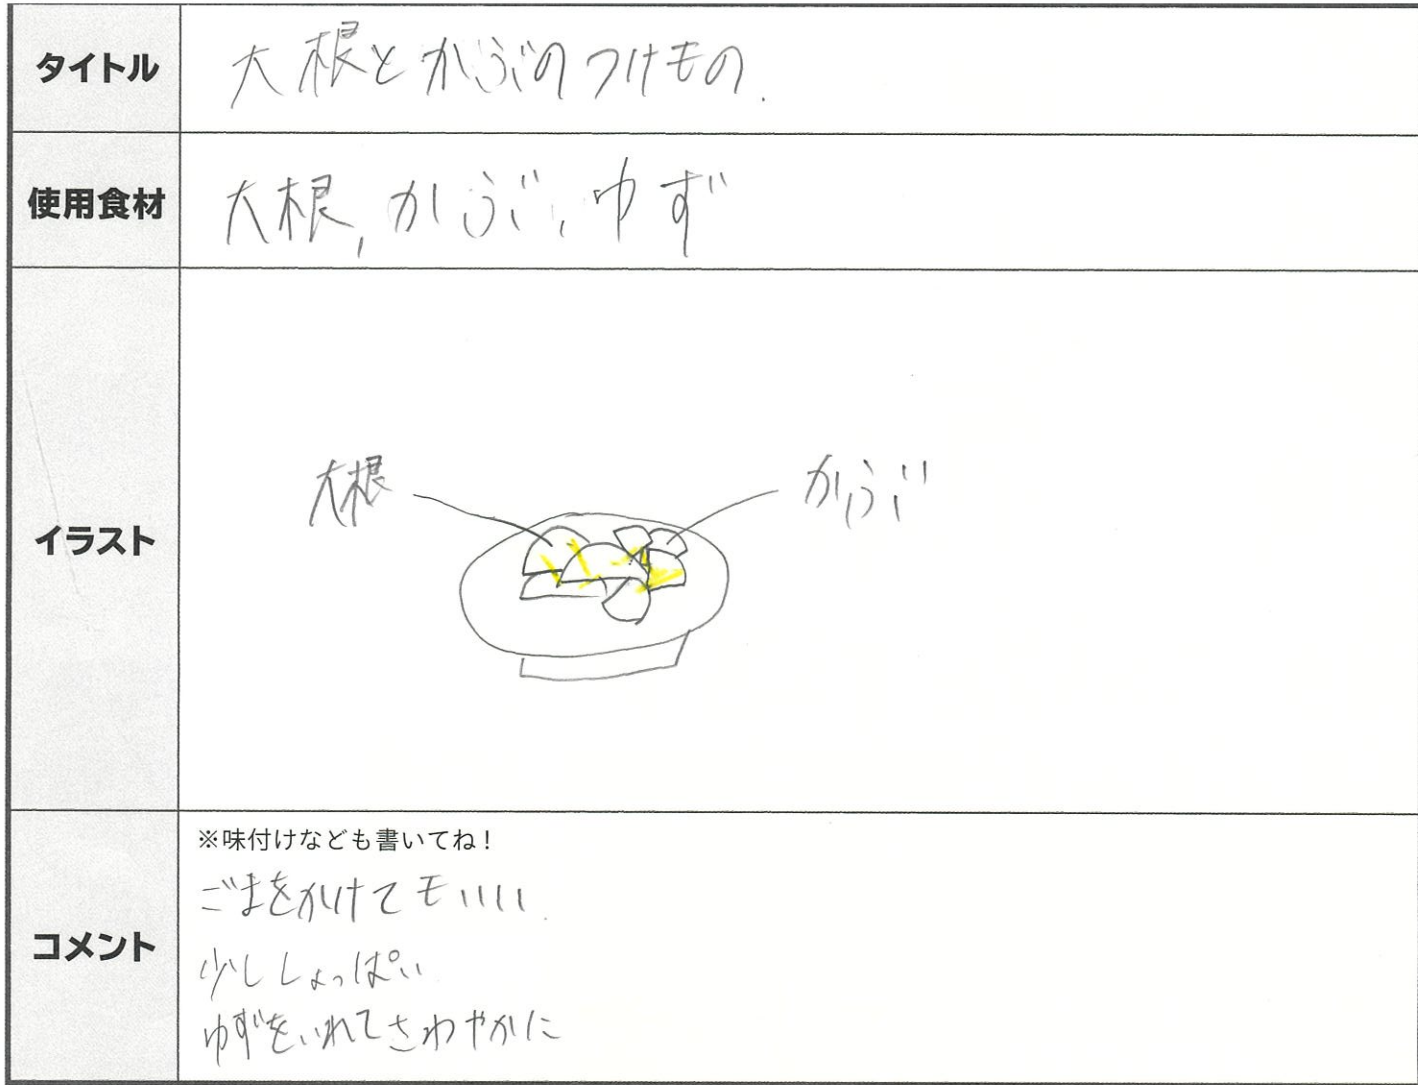 タイトル
大根とかぶのつけもの.
使用食材
大根,かぶ、ゆず
イラスト
大根
かぶ
コメント
※味付けなども書いてね!
ごまをかけてもいい.
少ししょっぱい
ゆずをいれてさわやかに